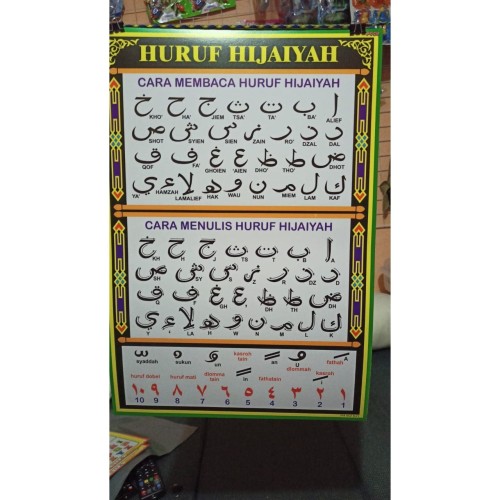 HURUF HIJAIYAH
CARA MEMBACA HURUF HIJAIYAH
ا ب ت ث ج ح خ
KHO' HA' JIEM TSA' TA' BA' ALIEF
د ذ ر ز س ش ص
SHOT SYIEN SIEN ZAIN RO' DZAL DAL
ض ط ظ ع غ ف ق
QOF FA' GHOIEN 'AIEN DHO' THO' DHOT
ك ل م ن و ه لا ء ي
YA' HAMZAH LAMALIEF HAK WAU NUN MIEM LAM KAF
CARA MENULIS HURUF HIJAIYAH
ا ب ت ث ج ح خ
KH H J TS T B A
د ذ ر ز س ش ص
SH SY S Z R DZ D
ض ط ظ ع غ ف ق
Q F GH G DH TH DH
ك ل م ن و ه لا ء ي
LA H W N M L K
syaddah sukun un kasroh tain an U fathah
huruf dobel huruf mati dlomma tain in fathatain dlommah kasroh i
١ ٢ ٣ ٤ ٥ ٦ ٧ ٨ ٩ ١٠
10 9 8 7 6 5 4 3 2 1